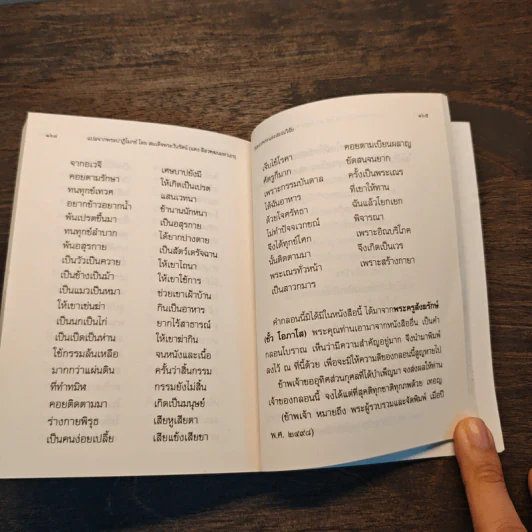 ๑๒๔
แปลจากพระปาฏิโมกข์ โดย สมเด็จพระวันรัตน์
จากอเวจี เศษบาปยังมี
คอยตามรักษา ให้เกิดเป็นเปรต
ทนทุกข์เทวศ แสนเวทนา
อยากข้าวอยากน้ำ ช้านานนักหนา
พ้นเปรตขึ้นมา เป็นอสุรกาย
ทนทุกข์ลำบาก ได้ยากปางตาย
พ้นอสุรกาย เป็นสัตว์เดรัจฉาน
เป็นวัวเป็นควาย ให้เขาไถนา
เป็นช้างเป็นม้า ให้เขาใช้การ
เป็นแมวเป็นหมา ช่วยเขาเฝ้าบ้าน
ให้เขาเข่นฆ่า กินเป็นอาหาร
เป็นนกเป็นไก่ ยากไร้สาธารณ์
เป็นเป็ดเป็นห่าน ให้เขาฆ่ากิน
ใช้กรรมล้นเหลือ จนหนังและเนื้อ
มากกว่าแผ่นดิน ครั้นว่าสิ้นกรรม
ที่ทำทมิฬ กรรมยังไม่สิ้น
คอยติดตามมา เกิดเป็นมนุษย์
ร่างกายพิรุธ เสียหูเสียตา
เป็นคนง่อยเปลี้ย เสียแข้งเสียขา
๑๒๕
เจ็บไข้โรคา คอยตามเบียนผลาญ
ศัตรูก็มาก ขัดสนจนยาก
เพราะกรรมบันดาล ครั้งเป็นพระเณร
ได้ฉันอาหาร ที่เขาให้ทาน
ด้วยใจศรัทธา ฉันแล้วโยกเยก
ไม่ทำปัจจเวกขณ์ พิจารณา
จึงได้ทุกข์โศก เพราะอิณบริโภค
นั้นติดตามมา จึงเกิดเป็นเวร
พระเณรทั่วหน้า เพราะสร้างกายา
เป็นสาวกมาร
คำกลอนนี้มิได้มีในหนังสือนี้ ได้มาจากพระครูสังฆรักษ์
(ชั้ว โอภาโส) พระคุณท่านเอามาจากหนังสืออื่น เป็นคำ
กลอนโบราณ เห็นว่ามีความสำคัญอยู่มาก จึงนำมาพิมพ์
ลงไว้ ณ ที่นี้ด้วย เพื่อจะมิให้ความดีของกลอนนี้สูญหายไป
ข้าพเจ้าขออุทิศส่วนกุศลที่ได้บำเพ็ญมา จงส่งผลให้ท่าน
เจ้าของกลอนนี้ จงได้แต่ที่สุคติทุกชาติทุกภพด้วย เทอญ
(ข้าพเจ้า หมายถึง พระผู้รวบรวมและจัดพิมพ์ เมื่อปี
พ.ศ. ๒๔๙๘)